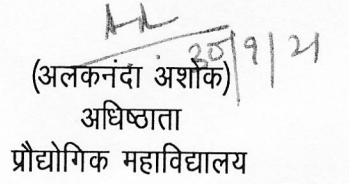 30/9/21
(अलकनंदा अशोक)
अधिष्ठाता
प्रौद्योगिक महाविद्यालय